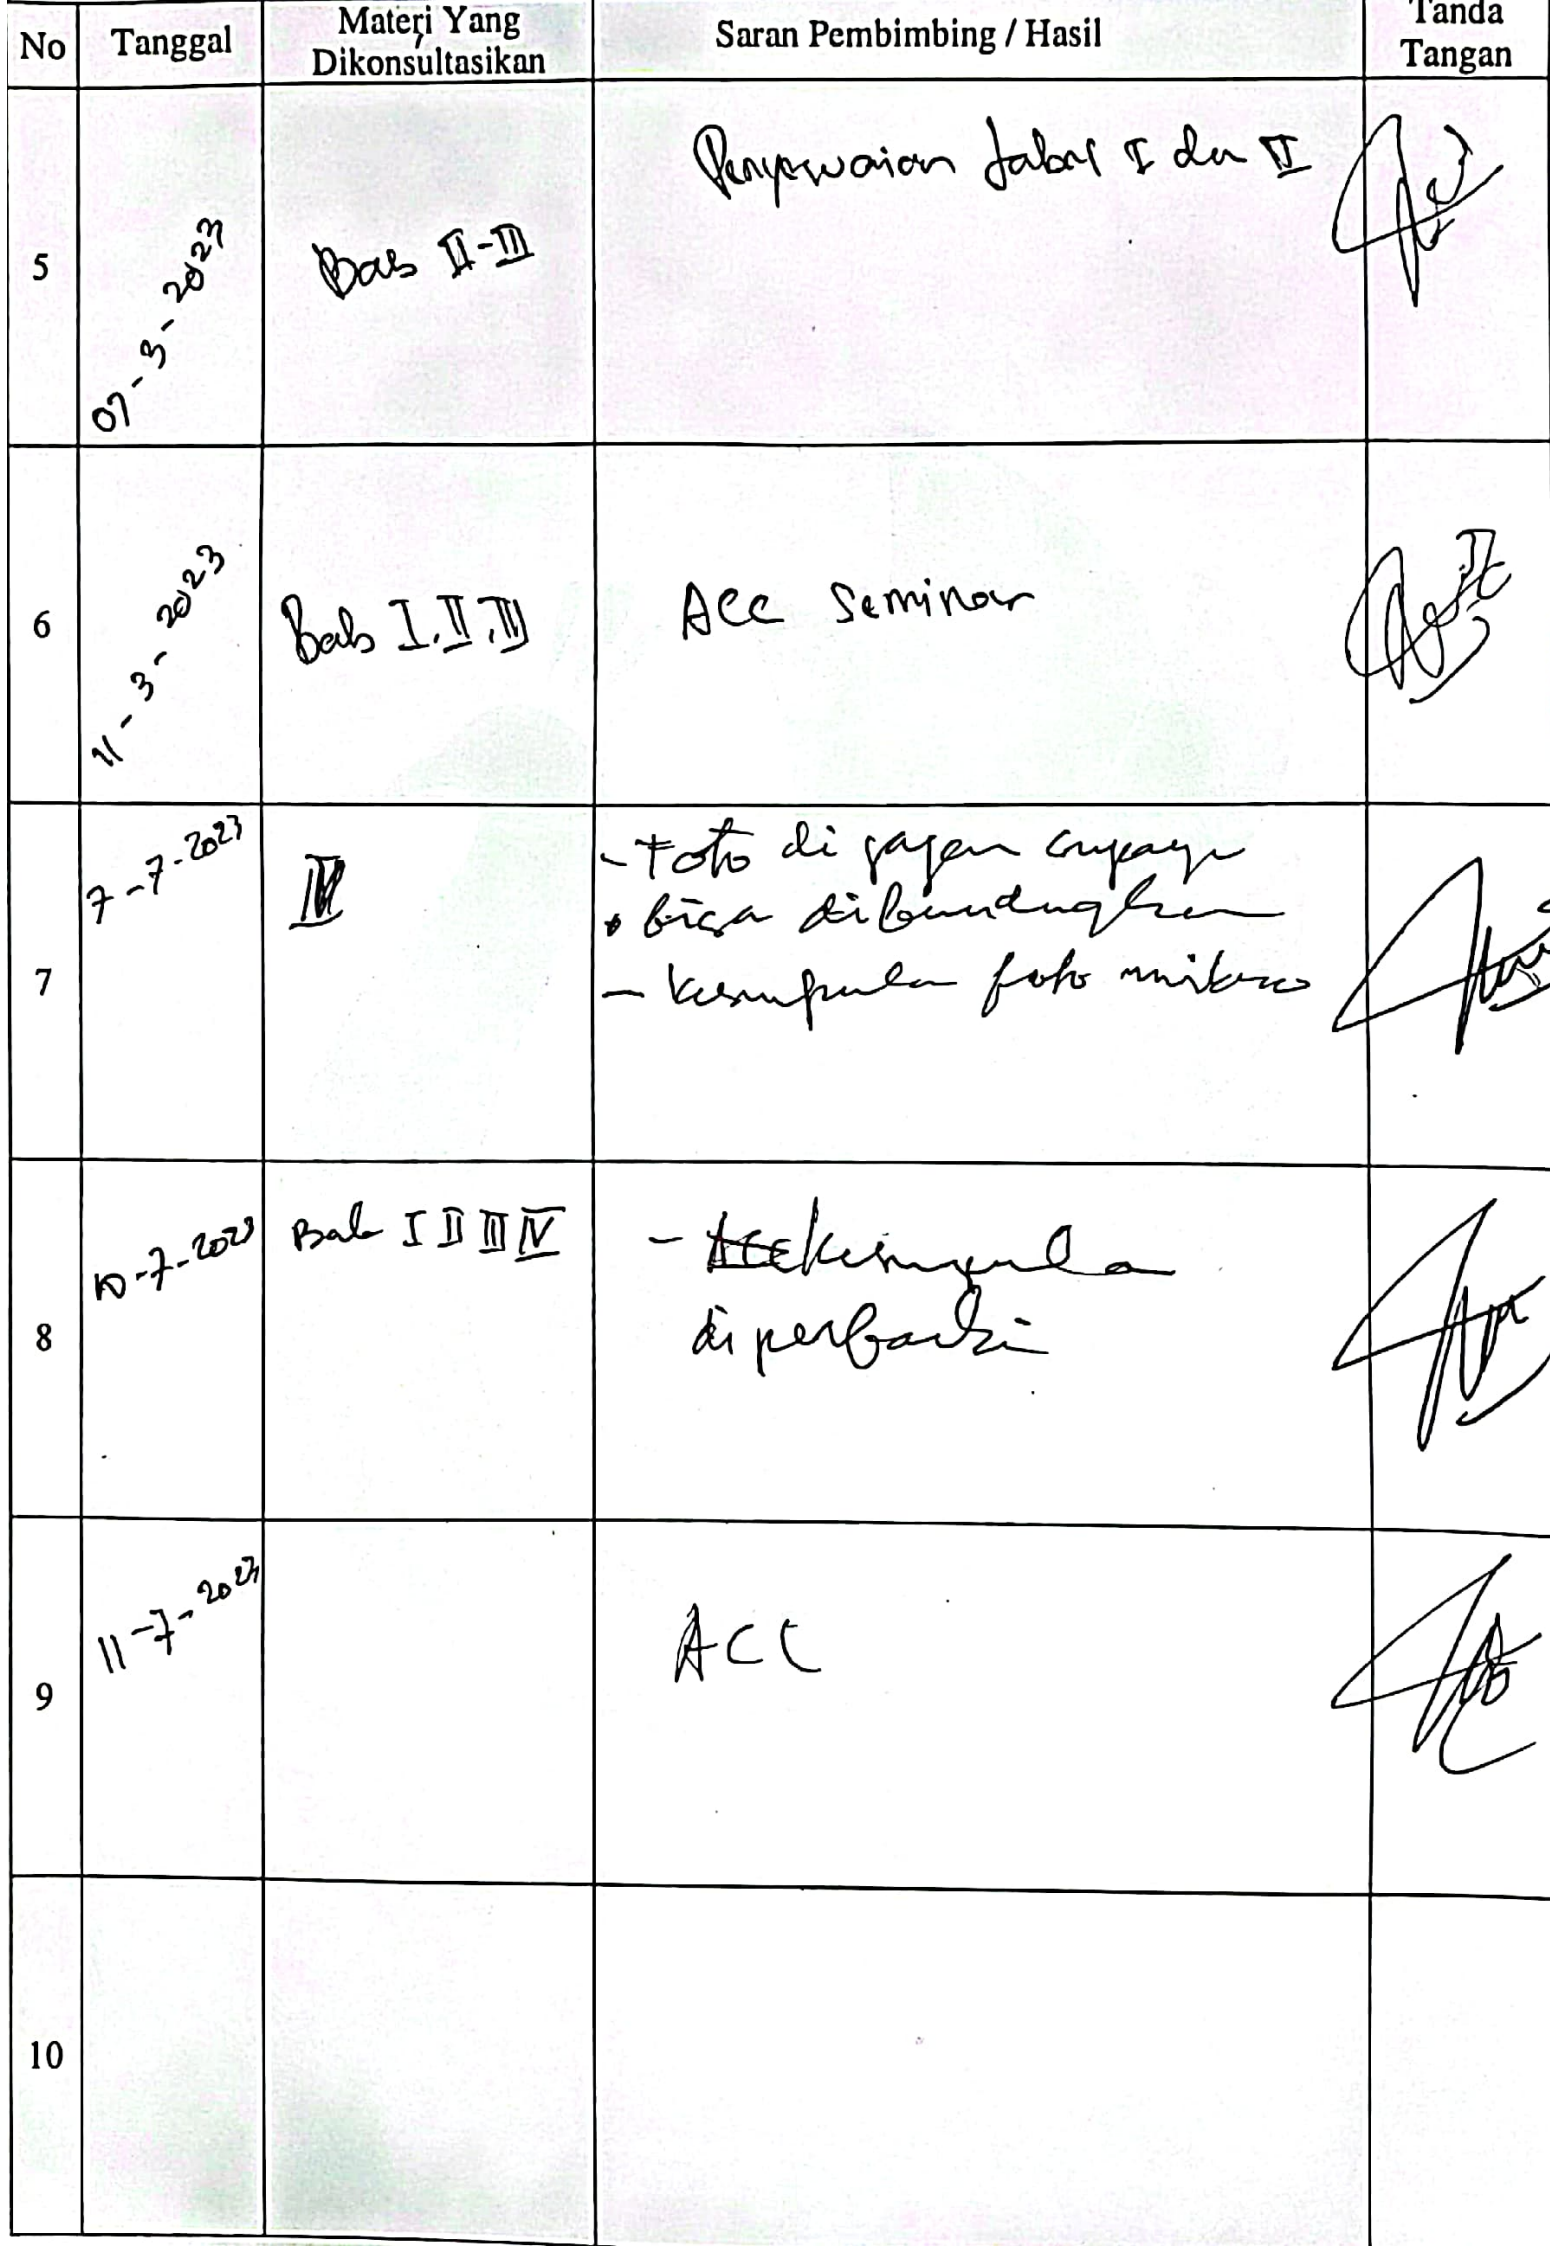 No Tanggal Materi Yang Dikonsultasikan Saran Pembimbing / Hasil Tanda Tangan
5 07-3-2023 Bab II-III I dan II
6 11-3-2023 Bab I.II.III ACC Seminar
7 7-7-2023 IV - Foto di
bisa dibandingkan
- foto mikro
8 10-7-2023 Bab I II III IV -
di perbaiki
9 11-7-2023 ACC
10